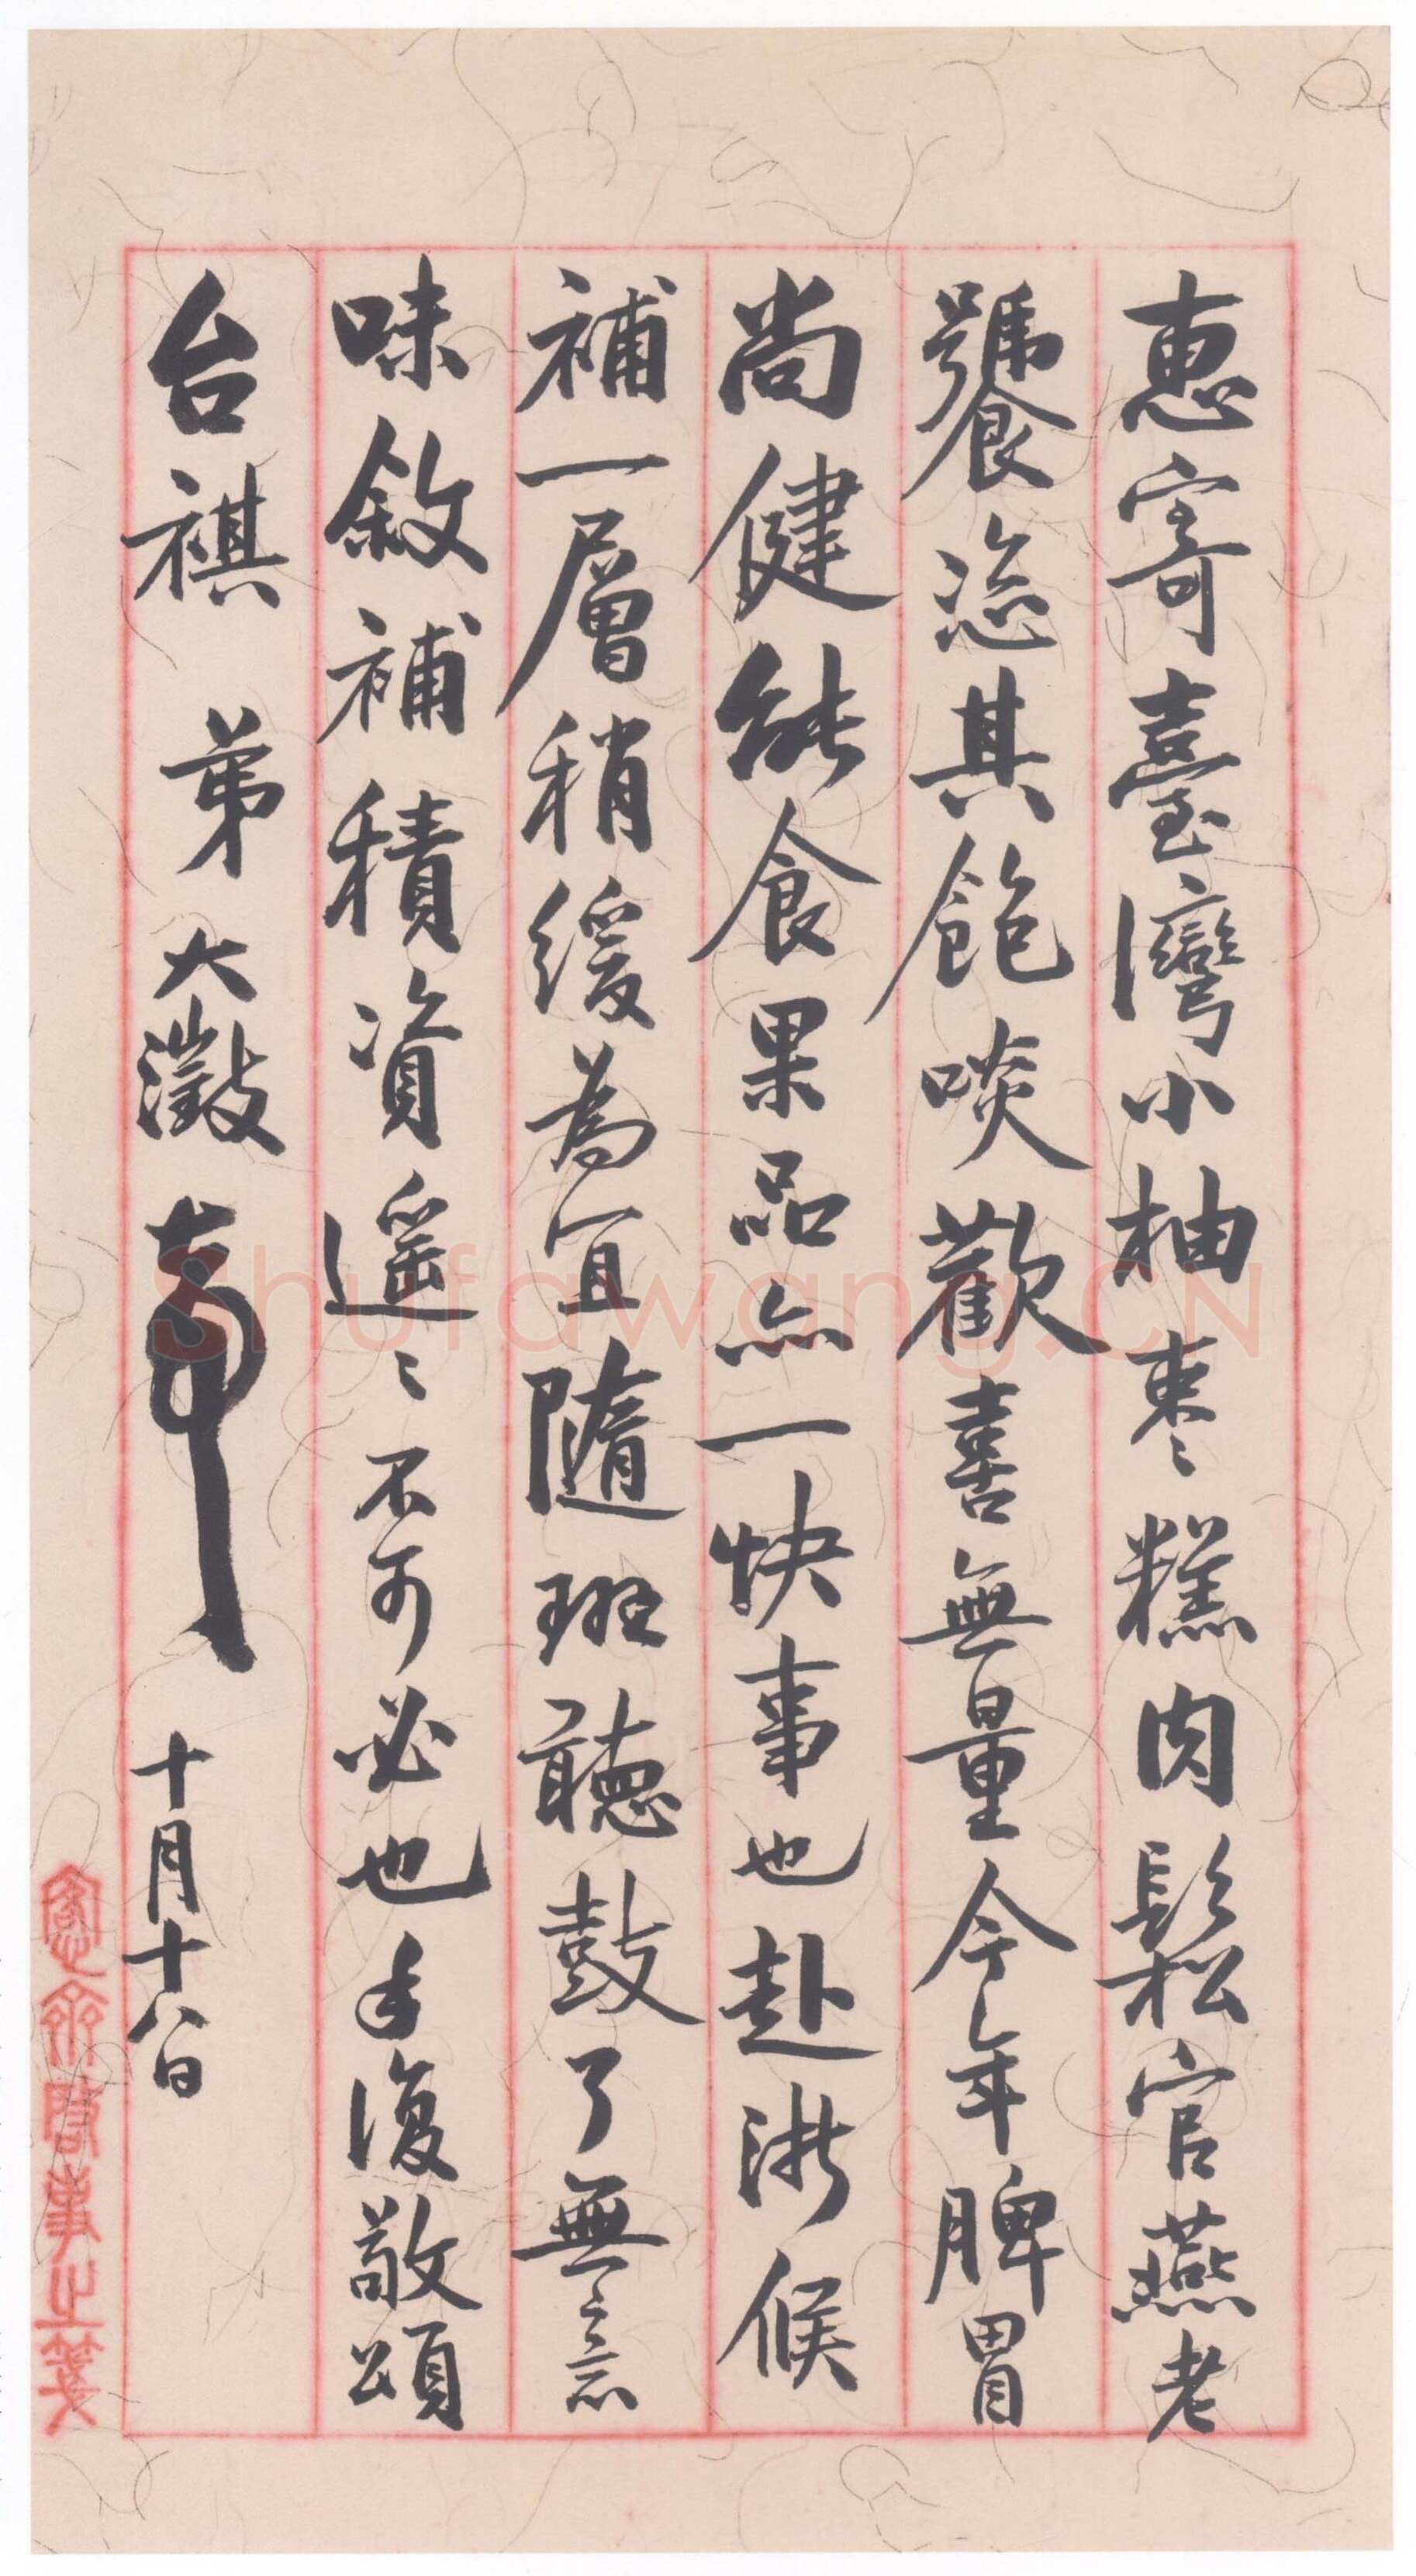 惠寄臺灣小柚棗〻糕肉鬆官燕老
饕恣其飽啖歡喜無量今年脾胃
尚健能食果品亦一快事也赴浙候
補一層稍緩為宜隨班聽鼓了無意
味敘補積資遙〻不可必也手復敬頌
台祺 弟大澂 十月十八日
Shufawang.CN